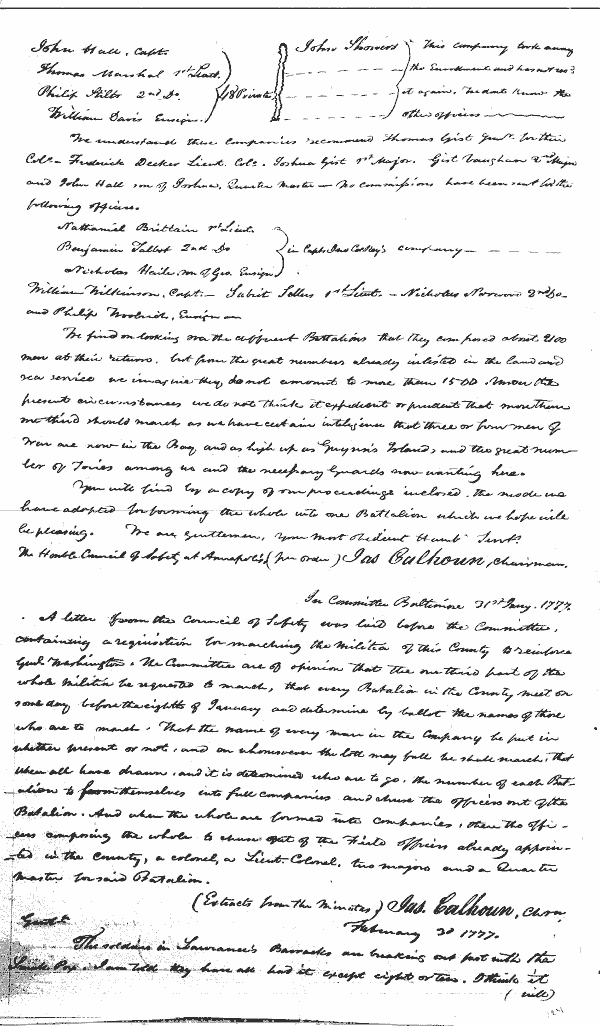 John Hall, Capt.
Thomas Marshal 1st Lieut.
Philip 2nd Do.
William Davis Ensign.
18 Privates
John Showers
This company took away
the Enrolment and has not
it again. We dont know the
other officers
We understand these companies recommend Thomas Gist Junr. for their
Colo. Frederick Decker Lieut. Colo. Joshua Gist 1st Major. Gist Vaughan 2d Major
and John Hall son of Joshua, Quarter Master — No commissions have been sent for the
following officers.
Nathaniel Brittain 1st Lieut.
Benjamin Talbot 2nd Do
Nicholas Haile, son of Geo. Ensign
in Capt. company
William Wilkinson, Capt. — Sabrit Sollers 1st Lieut. — Nicholas Norwood 2nd Do —
and Philip Ensign —
We find on looking over the different Battalions that they composed about 2100
men at their returns, but from the great numbers already inlisted in the land and
sea service we imagine they do not amount to more than 1500. Under the
present circumstances we do not think it expedient or prudent that more than
one third should march as we have certain inteligence that three or four men of
War are now in the Bay, and as high up as Gwynn's Island, and the great num-
ber of Tories among us and the necessary Guards now wanting here.
You will find by a copy of our proceedings inclosed, the mode we
have adopted for forming the whole into one Battalion which we hope will
be pleasing. We are gentlemen, your most obedient Humb. Servts.
The Honble Council of Safety at Annapolis (per order) Jas Calhoun, Chairman.
In Committee Baltimore 31st Jany. 1777.
A letter from the Council of Safety was laid before the Committee,
containing a requisition for marching the Militia of this County to reinforce
Genl. Washington. The Committee are of opinion that the one third part of the
whole Militia be requested to march, that every Batalion in the County meet on
some day before the eighth of January and determine by ballot the names of those
who are to march. That the name of every man in the Company be put in
whether present or not, and on whomsoever the lott may fall he shall march, that
when all have drawn, and it is determined who are to go, the number of each Bat-
alion to form themselves into full companies and chuse the officers out of the
Batalion. And when the whole are formed into companies, then the offi-
cers composing the whole to chuse out of the Field Officers already appoin-
ted in the County, a colonel, a Lieut. Colonel, two majors and a Quarter
Master for said Batalion.
(Extracts from the Minutes) Jas. Calhoun, Chrm.
February 3d 1777.
Gent.
The soldiers in Barracks are breaking out fast with the
Small Pox. I am told they have all had it except eight or ten. I think it
(will)